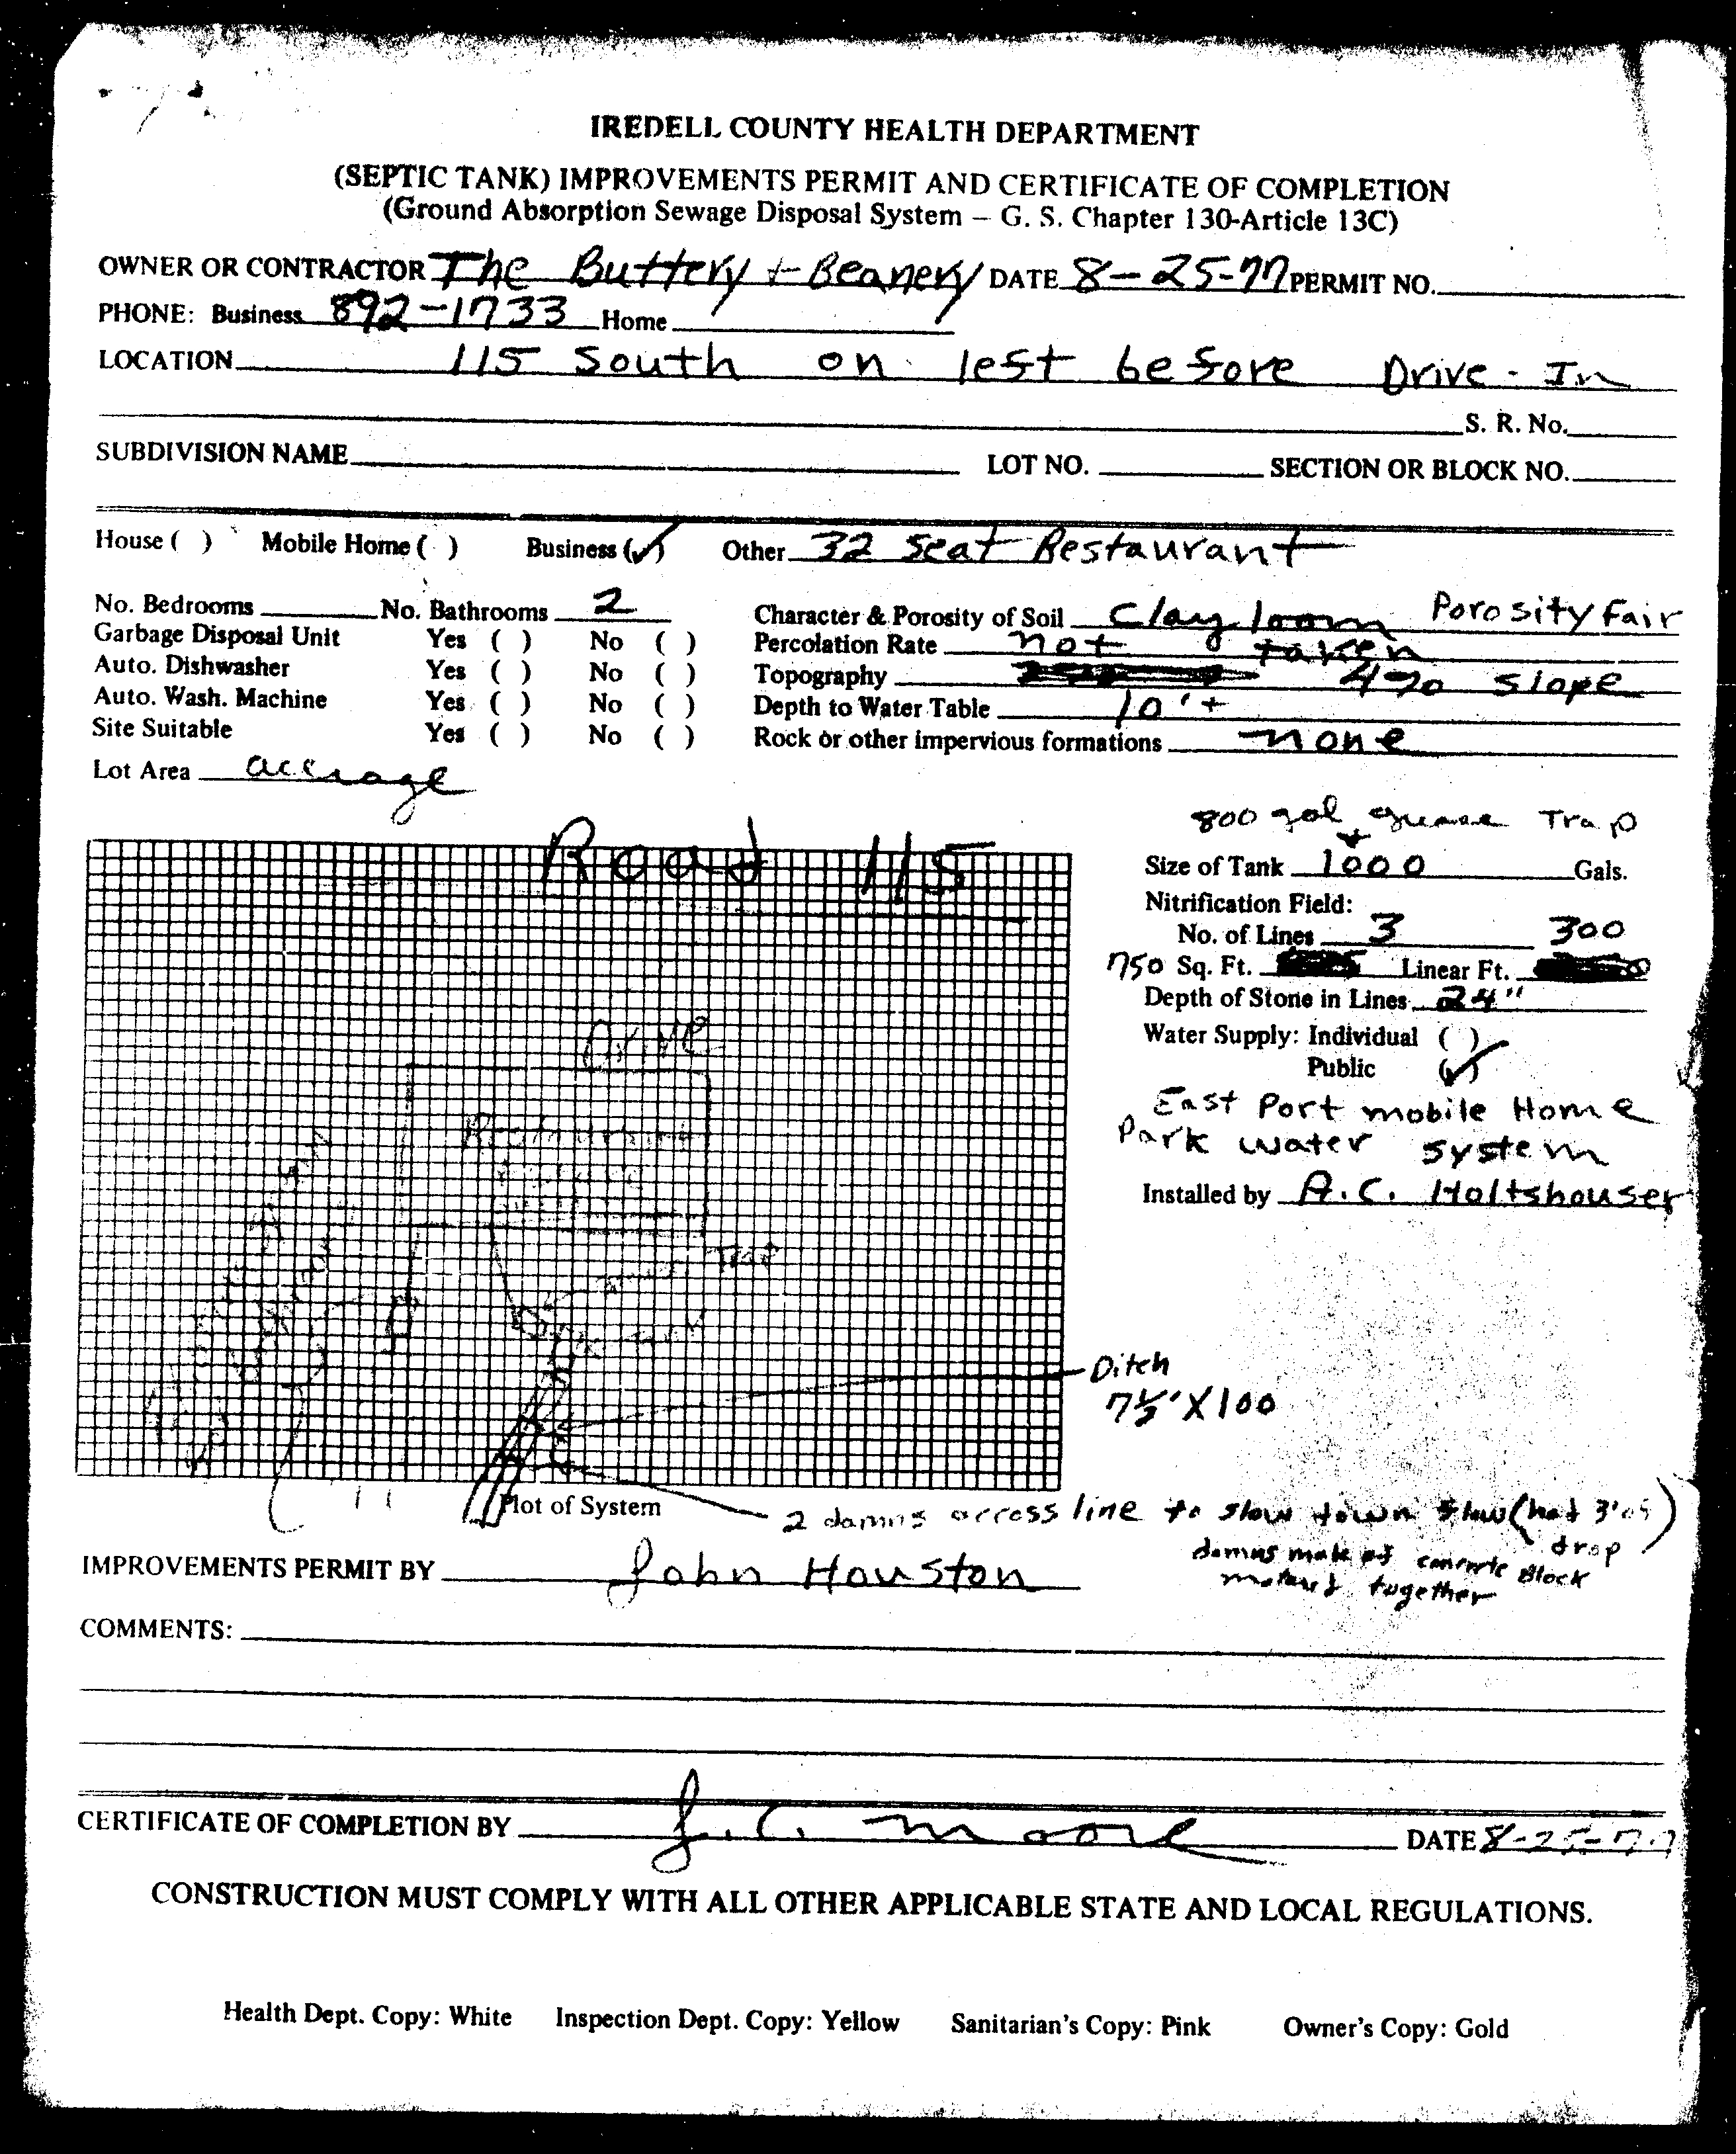 IREDELL COUNTY HEALTH DEPARTMENT
(SEPTIC TANK) IMPROVEMENTS PERMIT AND CERTIFICATE OF COMPLETION
(Ground Absorption Sewage Disposal System – G. S. Chapter 130-Article 13C)
OWNER OR CONTRACTOR The Buttery + Beanery DATE 8-25-77 PERMIT NO.
PHONE: Business 892-1733 Home
LOCATION 115 South on left before Drive-In
S. R. No.
SUBDIVISION NAME LOT NO. SECTION OR BLOCK NO.
House ( ) Mobile Home ( ) Business (✓) Other 32 Seat Restaurant
No. Bedrooms No. Bathrooms 2 Character & Porosity of Soil Clay loam Porosity Fair
Garbage Disposal Unit Yes ( ) No ( ) Percolation Rate not taken
Auto. Dishwasher Yes ( ) No ( ) Topography 4% slope
Auto. Wash. Machine Yes ( ) No ( ) Depth to Water Table 10'+
Site Suitable Yes ( ) No ( ) Rock or other impervious formations none
Lot Area acerage
800 gal grease Trap
+
Road 115
Size of Tank 1000 Gals.
Nitrification Field:
No. of Lines 3 300
750 Sq. Ft. Linear Ft.
Depth of Stone in Lines 24"
Water Supply: Individual ( )
Public (✓)
Drive
East Port mobile Home
Park water system
Installed by A.C. Holtshouser
Trap
Ditch
7½' X 100
Plot of System
2 damns accross line to slow down flow (had 3' of drop)
damns made of concrete Block
together
IMPROVEMENTS PERMIT BY John Houston
COMMENTS:
CERTIFICATE OF COMPLETION BY J.C. Moore DATE 8-25-77
CONSTRUCTION MUST COMPLY WITH ALL OTHER APPLICABLE STATE AND LOCAL REGULATIONS.
Health Dept. Copy: White Inspection Dept. Copy: Yellow Sanitarian's Copy: Pink Owner's Copy: Gold